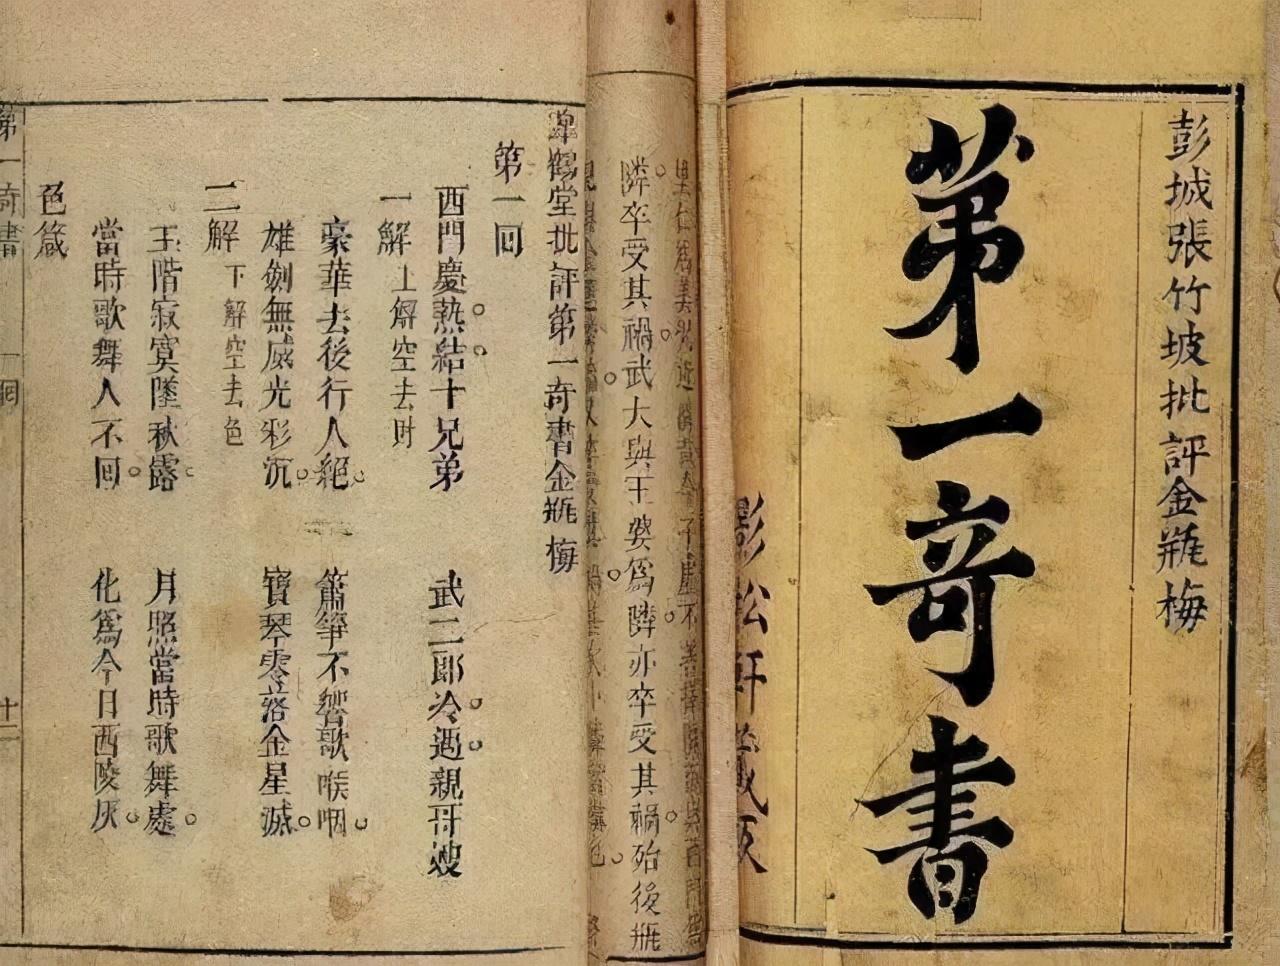 彭城張竹坡批評金瓶梅
第一奇書
影松軒藏板
隣卒受其禍武大與王婆爲隣亦卒受其禍殆後瓶
皐鶴堂批評第一奇書金瓶梅
第一回
西門慶熱結十兄弟 武二郎冷遇親哥嫂
一解 上解空去財
豪華去後行人絕 簫箏不響歌喉咽
雄劍無威光彩沉 寶琴零落金星滅
二解 下解空去色
玉階寂寞墜秋露 月照當時歌舞處
當時歌舞人不回 化爲今日西陵灰
色箴
第一奇書 一回 十二